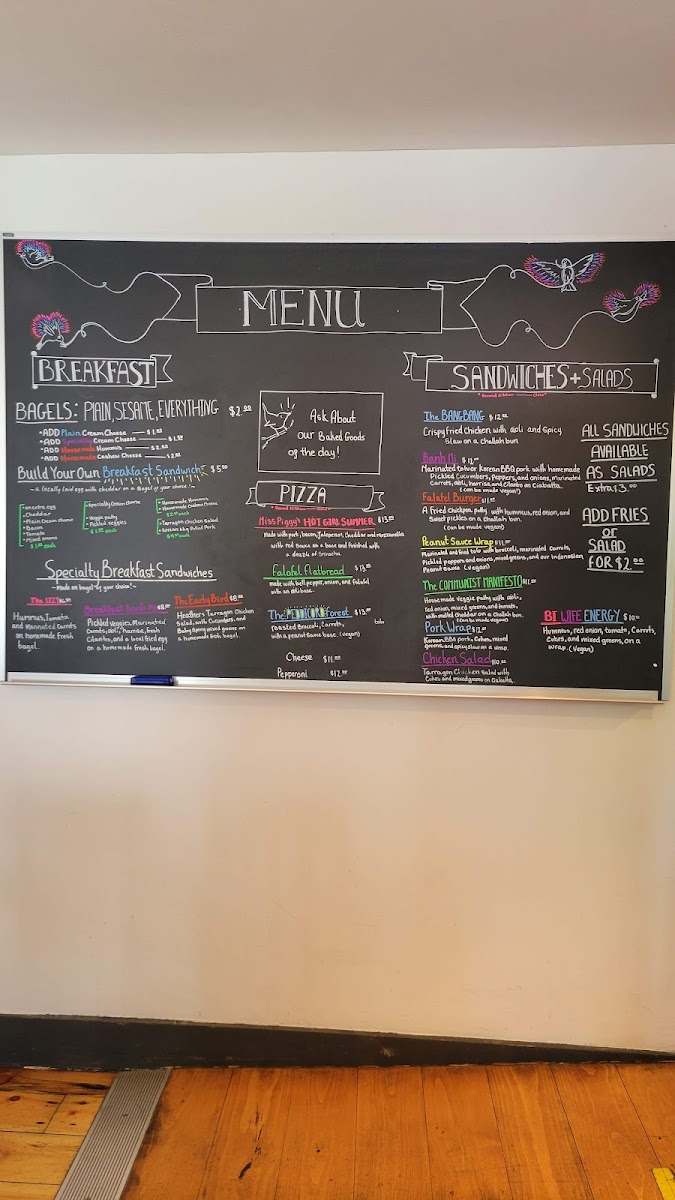 MENU
BREAKFAST
BAGELS: PLAIN, SESAME, EVERYTHING $2.00
*ADD Plain Cream Cheese
*ADD Specialty Cream Cheese
*ADD Homemade Hummus
*ADD Homemade Cashew Cheese
Build Your Own Breakfast Sandwich $5.00
- a locally laid egg with cheddar on a Bagel of your choice! -
• Cheddar
• Plain Cream Cheese
• Bacon
• Tomato
• Mixed greens
• Specialty Cream Cheese
• Veggie patty
• Pickled veggies
• Homemade Hummus
• Homemade Cashew Cheese
• Tarragon Chicken Salad
Specialty Breakfast Sandwiches
- made on bagel of your choice! -
The IZZY
Hummus, Tomato
and Marinated Carrots
on homemade fresh
bagel.
Breakfast Banh Mi
Pickled Veggies, Marinated
Carrots, aoli, harrisa, fresh
Cilantro, and a local fried egg
on a homemade fresh bagel.
The Early Bird
Heather's Tarragon Chicken
Salad, with Cucumbers, and
mixed greens on
a homemade fresh bagel.
Ask About
our Baked Goods
of the day!
PIZZA
Miss Piggy's HOT GIRL SUMMER $13.00
Made with pork, bacon, Jalapenos, Cheddar and mozzarella
with red sauce as a base and finished with
a drizzle of Sriracha
Falafel Flatbread $13.00
made with bell pepper, onion, and falafel
with an aoli base.
The Forest $13.00
roasted Broccoli, Carrots, tofu
with a peanut sauce base. (vegan)
Cheese $11.00
Pepperoni $12.00
SANDWICHES + SALADS
The BANGBANG $12.00
Crispy Fried Chicken with aoli and Spicy
Slaw on a challah bun
Banh Mi
Marinated tofu or Korean BBQ pork with homemade
Pickled Cucumbers, Peppers, and onions, marinated
Carrots, aoli, harrisa, and Cilantro on Ciabatta.
(can be made vegan)
Falafel Burger
A fried Chickpea patty with hummus, red onion, and
Sweet pickles on a challah bun.
(can be made vegan)
Peanut Sauce Wrap
Marinated and fried tofu with broccoli, marinated Carrots,
Pickled peppers and onions, mixed greens, and our indonesian
Peanut Sauce (vegan)
The COMMUNIST MANIFESTO
House made veggie patty with aoli,
red onion, mixed greens, and tomato,
with melted cheddar on a challah bun.
(can be made vegan)
Pork Wrap $12.00
Korean BBQ pork, Cukes, mixed
greens, and spicy slaw on a wrap.
Chicken Salad
Tarragon Chicken salad with
Cukes and mixed greens on Ciabatta.
ALL SANDWICHES
AVAILABLE
AS SALADS
Extra $3.00
ADD FRIES
or
SALAD
FOR $2.00
BI WIFE ENERGY $10.00
Hummus, red onion, tomato, Carrots,
Cukes, and mixed greens, on a
wrap. (Vegan)